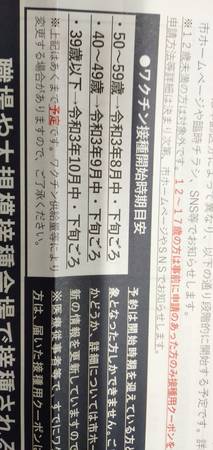 市ホームページや臨時チラシ、SNS等でお知らせします。
により異なり、以下の通り段階的に開始する予定です。詳
※12歳未満の方は対象外です。12~17歳の方は事前に申請のあった方のみ接種用クーポンを
申請方法等詳細は決まり次第、市ホームページやSNSでお知らせします。
●ワクチン接種開始時期目安
・50~59歳→令和3年8月中・下旬ごろ
・40~49歳→令和3年9月中・下旬ごろ
・39歳以下→令和3年10月中・下旬ごろ
※上記はあくまで予定です。ワクチン供給量等により
変更する場合がありますので、ご了承ください。
予約は開始時期を迎えている方と
象となった方しかできません。ご
かどうか、詳細については市ホー
新の情報を更新していますので
※医療従事者等で、すでにワ
方は、届いた接種用クーポン
職場や大規模接種会場で接種される